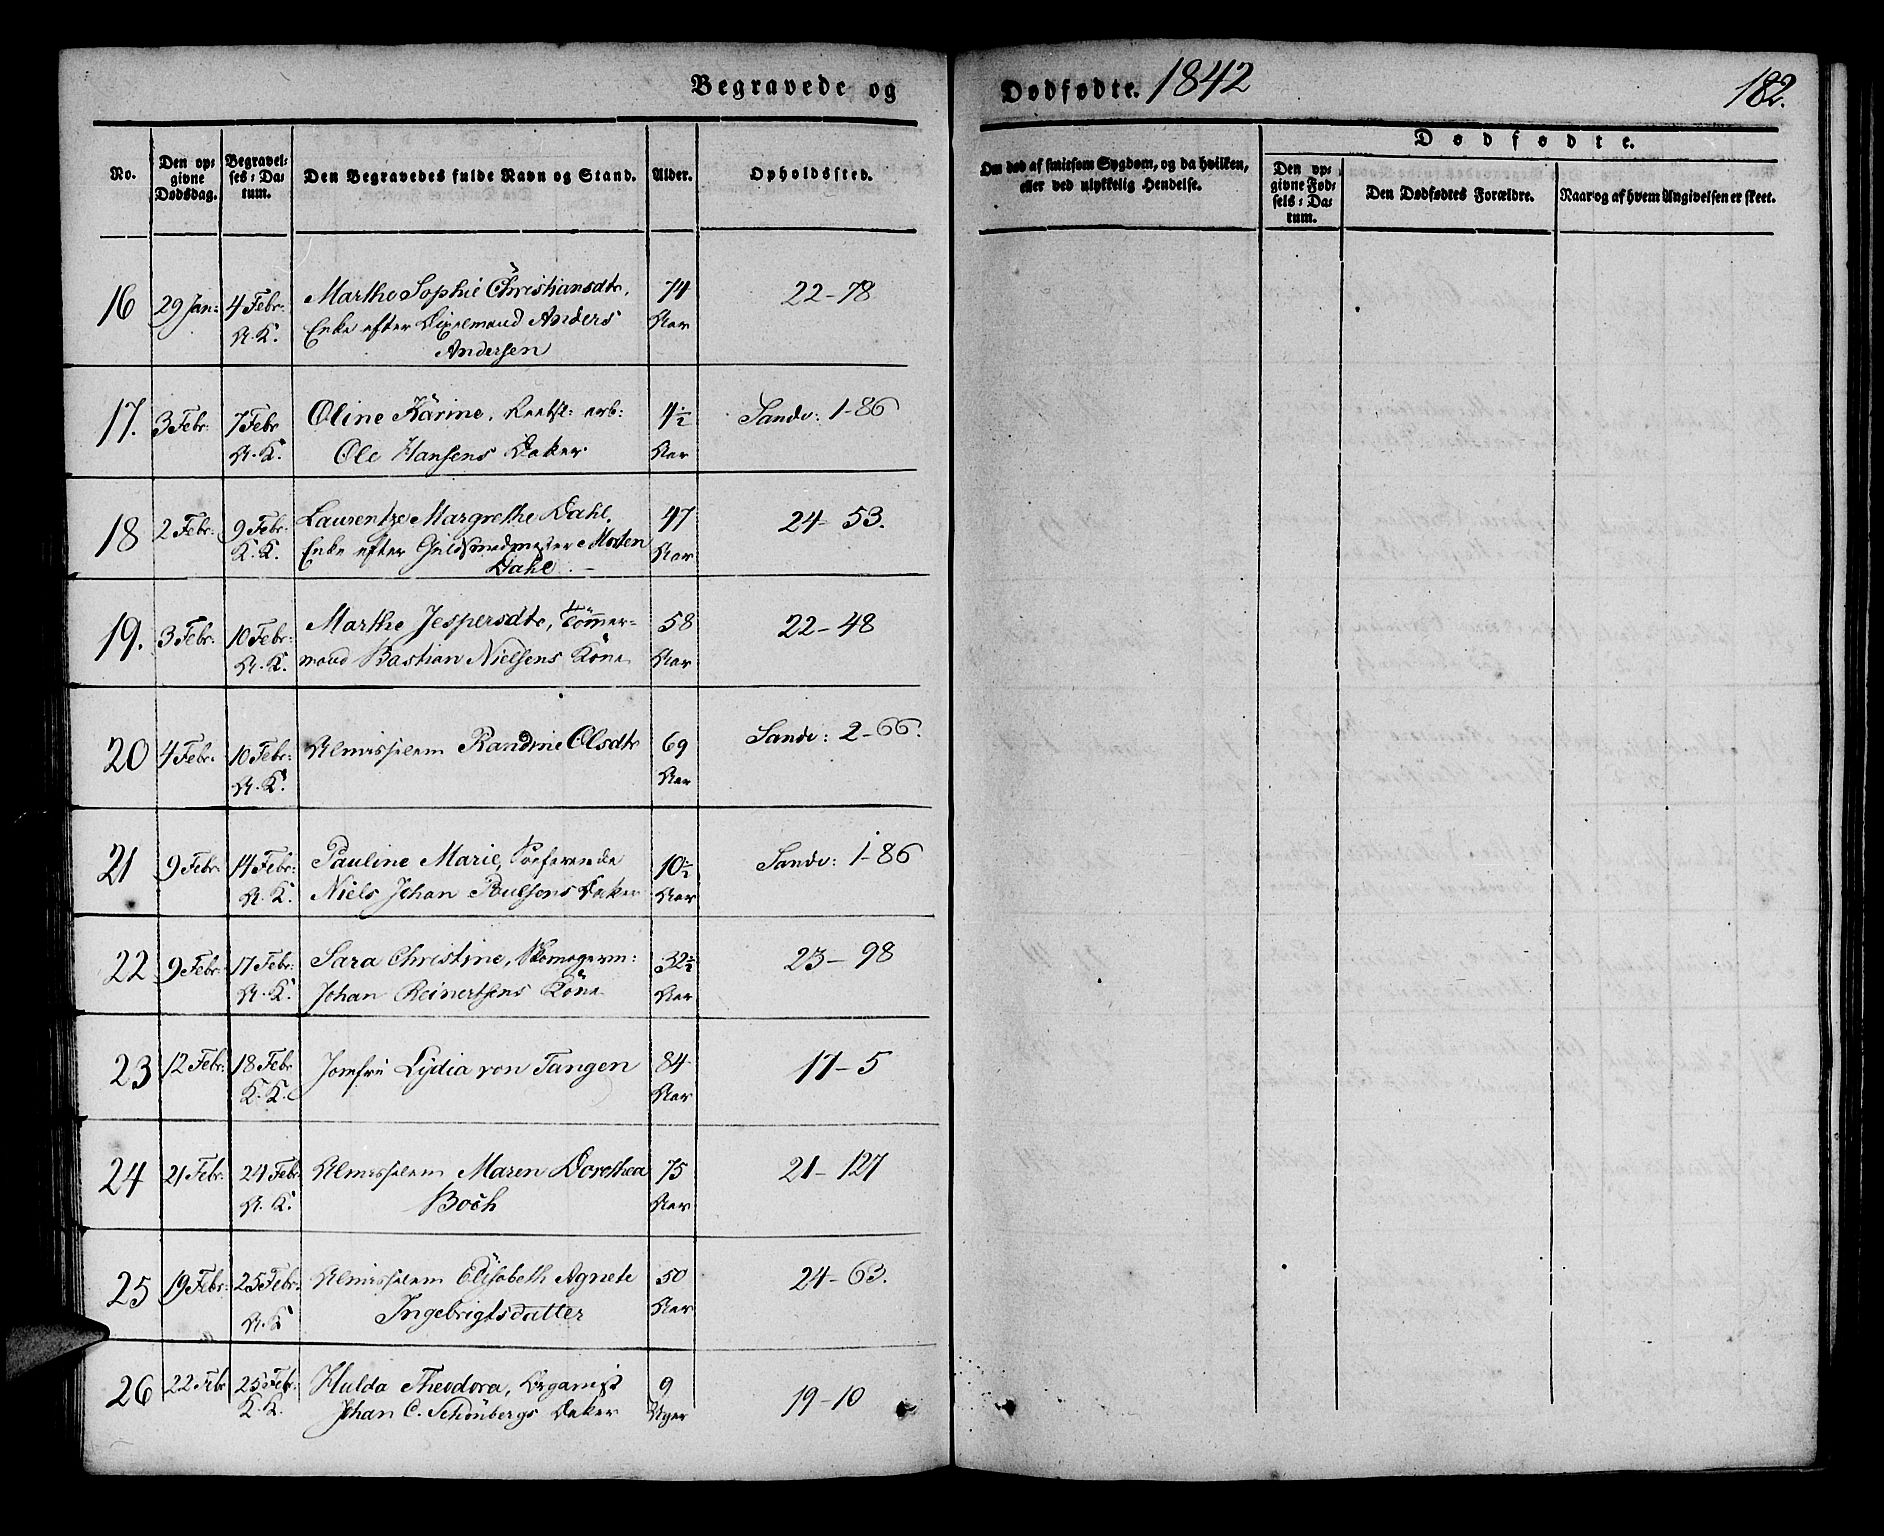 Begravede og Dødfødte. 1842
182.
No. | Den opgivne Dødsdag. | Begravelses-Datum. | Den Begravedes fulde Navn og Stand. | Alder. | Opholdssted. | Om død af smitsom Sygdom, og da hvilken, eller ved ulykkelig Hendelse. | Dødfødte. | Den opgivne Fødsels-Datum. | Den Dødfødtes Forældre. | Naar og af hvem Angivelsen er skeet.
16 29 Jan: 4 Febr: Marthe Sophie Christiansdtr, 74 22-78
A. K. Enke efter Anders Aar
Andersen
17. 3 Febr: 7 Febr Oline Karine, arb: 4½ Sandv: 1-86
A. K. Ole Hansens Datter Aar
18 2 Febr: 9 Febr: Laurentze Margrethe Dahl, 47 24-53.
K. K. Enke efter Guldsmedmester Morten Aar
Dahl. -
19. 3 Febr: 10 Febr: Marthe Jespersdtr, Tömmer- 58 22-48
A. K. mand Bastian Nielsens Kone Aar
20 4 Febr. 10 Febr: Almisselem Randine Olsdtr 69 Sandv: 2-66.
A. K. Aar
21 9 Febr: 14 Febr: Pauline Marie, Söefarende 10½ Sandv: 1-86
A. K. Niels Johan Poulsens Datter Aar
22 9 Febr: 17 Febr: Sara Christine, Skomagerm: 32½ 23-98
A. K. Johan Reinertsens Kone Aar
23 12 Febr: 18 Febr Jomfru Lydia von Tangen 84 17-5
K. K. Aar
24 21 Febr. 24 Febr. Almisselem Maren Dorethea 75 21-127
A. K. Boch Aar
25 19 Febr: 25 Febr. Almisselem Elisabeth Agnete 50 24-63.
A. K Ingebrigtsdatter Aar
26 22 Febr 25 Febr. Hulda Theodora, Organist 9 19-10
K. K. Johan C. Schönbergs Datter Uger